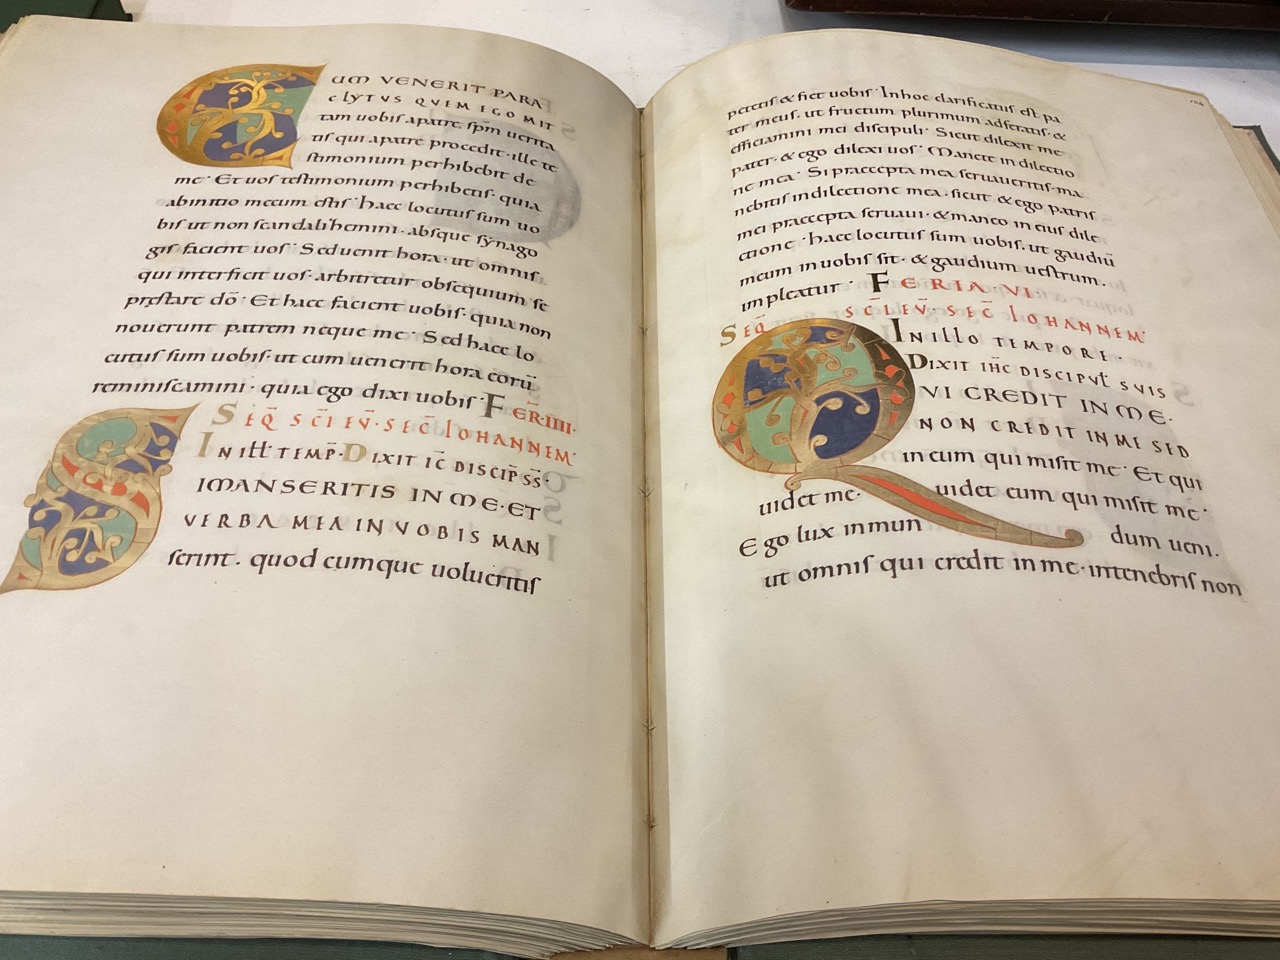 CUM VENERIT PARA
CLYTUS QUEM EGO MIT
tam uobis apatre. sp̄m uerita
tis qui apatre procedit. ille te
stimonium perhibebit de
me. Et uos testimonium perhibetis. quia
abinitio mecum estis. haec locutus sum uo
bis ut non scandalihemini. absque synago
gis facient uos. Sed uenit hora. ut omnis
qui interficit uos. arbitretur obsequium se
pręstare dō. Et haec facient uobis. quia non
nouerunt patrem neque me. Sed haec lo
cutus sum uobis. ut cum uenerit hora corū
reminiscamini. quia ego dixi uobis. FER̄. IIII.
SEQ̄ SC̄I EV̄. SEC̄ IOHANNEM.
IN ILL̄ TEMP̄. DIXIT IC̄ DISCIP̄ S̄S̄.
SI MANSERITIS IN ME. ET
VERBA MEA IN VOBIS MAN
serint. quod cumque uolueritis
petetis & fiet uobis. Inhoc clarificatus est pa
ter meus. ut fructum plurimum adferatis. &
efficiamini mei discipuli. Sicut dilexit me
pater. & ego dilexi uos. Manete in dilectio
ne mea. Si praecepta mea seruaueritis. ma
nebitis in dilectione mea. sicut & ego patris
mei praecepta seruaui. & maneo in eius dile
ctione. haec locutus sum uobis. ut gaudiū
meum in uobis sit. & gaudium uestrum.
impleatur. FERIA. VI
SEQ̄ SC̄I EV̄. SEC̄ IOHANNEM.
IN ILLO TEMPORE.
DIXIT IH̄C DISCIPUL̄ SVIS
QVI CREDIT IN ME.
NON CREDIT IN ME SED
in eum qui misit me. Et qui
uidet me. uidet eum qui misit me.
Ego lux in mundum ueni.
ut omnis qui credit in me. intenebris non